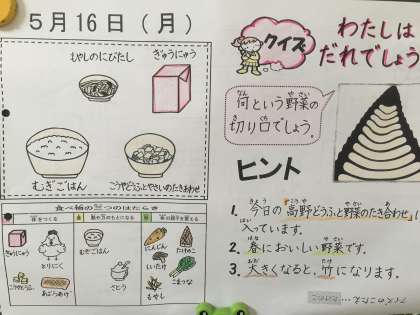 5月16日（月）
もやしのにびたし
ぎゅうにゅう
むぎごはん
こうやどうふとやさいのたきあわせ
食べ物の三つのはたらき
ぎゅうにゅう
とりにく
こうやどうふ
あぶらあげ
むぎごはん
さとう
にんじん
たけのこ
しいたけ
こまつな
もやし
クイズ
わたしは
だれでしょう
何という野菜の
切り口でしょう。
ヒント
1. 今日の「高野どうふと野菜のたき合わせ」
入っています。
2. 春においしい野菜です。
3. 大きくなると、竹になります。